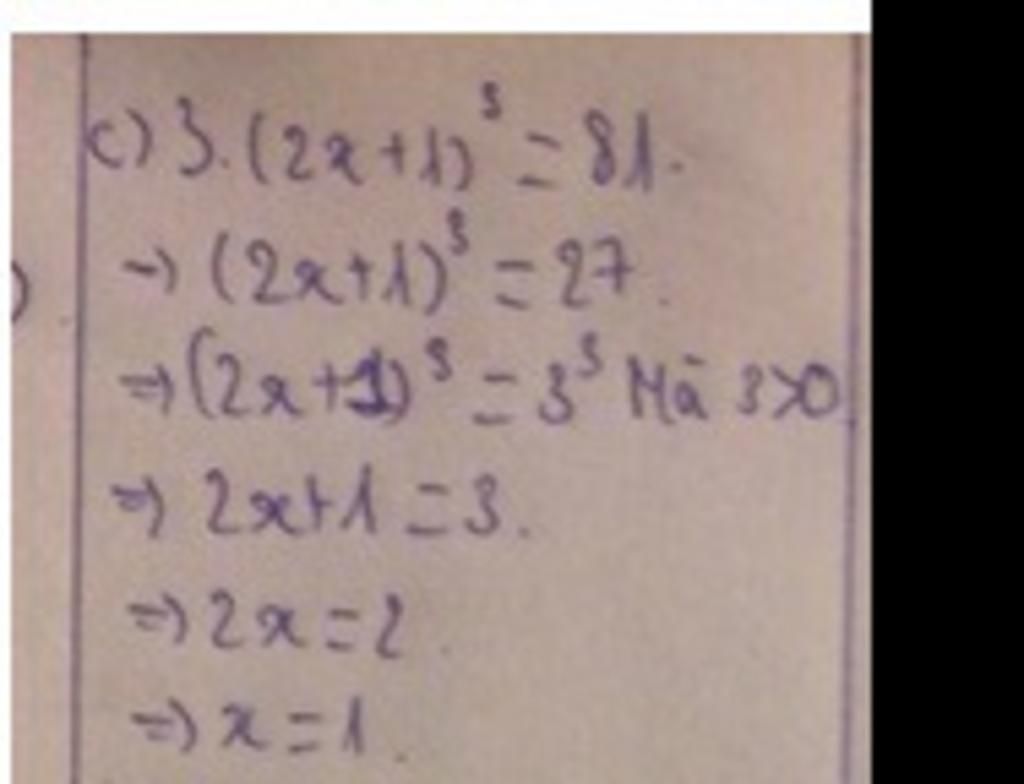 c) 3.(2x+1)³ = 81.
→ (2x+1)³ = 27.
⇒ (2x+1)³ = 3³ Mà 3>0
⇒ 2x+1 = 3.
⇒ 2x = 2.
⇒ x = 1.